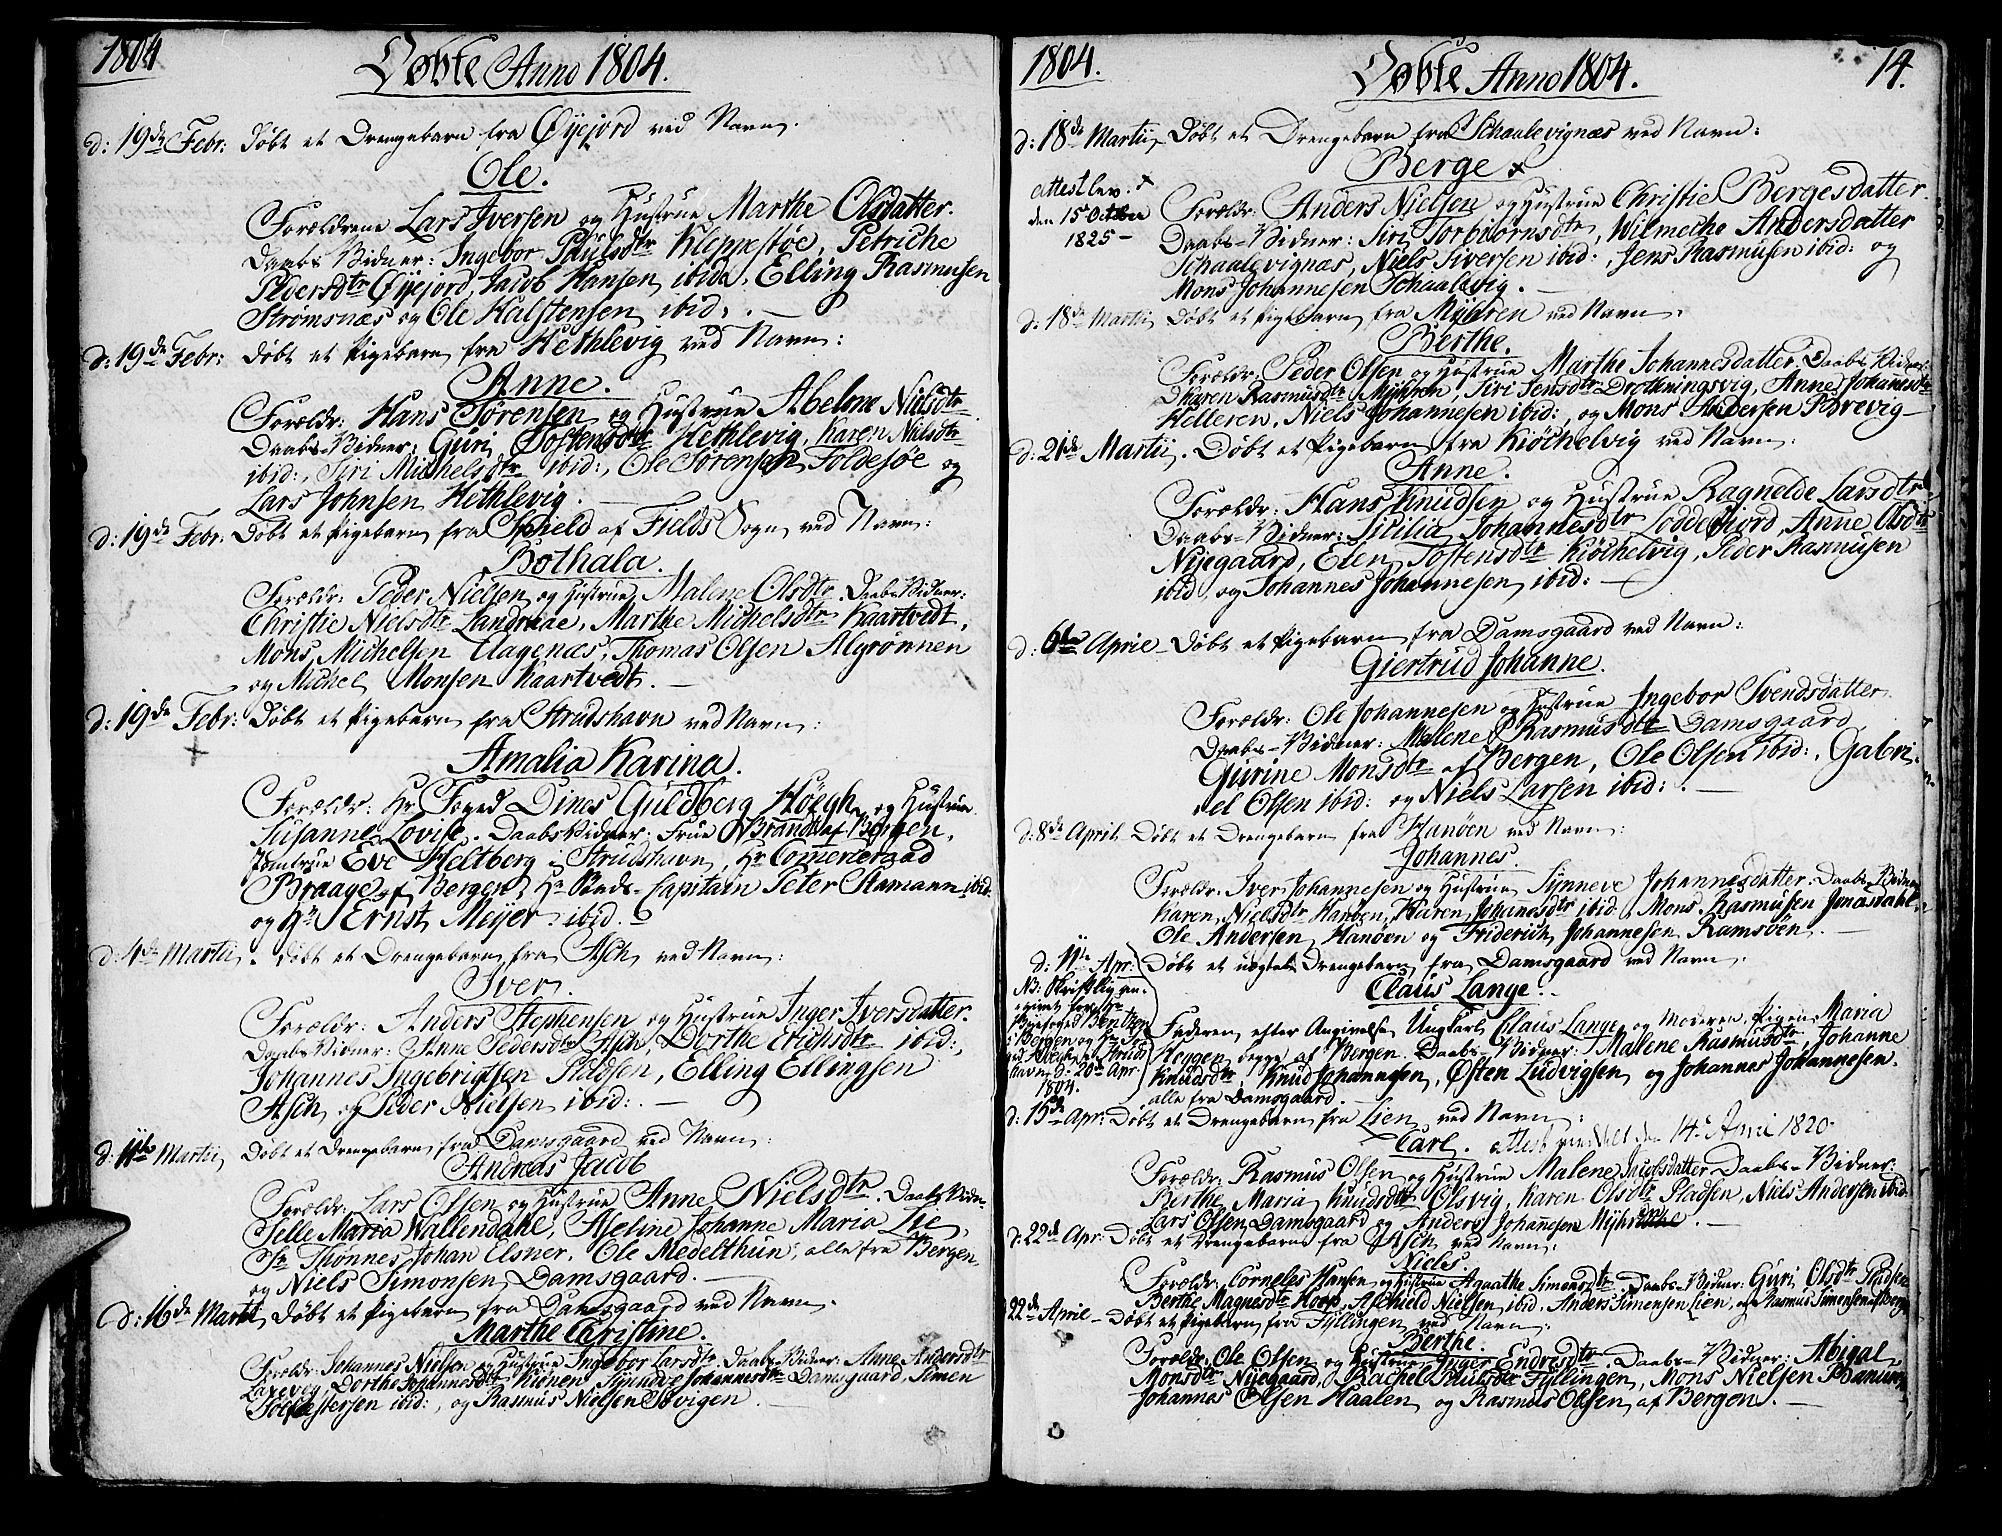 1804
Døbte Anno 1804.
d: 19de Febr: Døbt et Drengebarn fra Øyejord ved Navn.
Ole.
Forældrene Lars Iversen og Hustrue Marthe Olsdatter.
Daabs Vidner: Ingebor Poulsdtr Kleppestøe, Petriche
Pedersdtr Øyejord, Jacob Hansen ibid:, Elling Rasmusen
Strømsnæs og Ole Halstensen ibid:.
d: 19de Febr: Døbt et Pigebarn fra Hethlevig ved Navn:
Anne.
Forældr: Hans Sørensen og Hustrue Abelone Nielsdtr
Daabs-Vidner: Guri Tostensdtr Hethlevig, Karen Nielsdtr
ibid:, Siri Michelsdtr ibid:, Ole Sørensen Foldesøe og
Lars Johnsen Hethlevig.
d: 19de Febr: Døbt et Pigebarn fra af Fields Sogn ved Navn:
Bothala.
Forældr: Peder Nielsen og Hustrue Malene Olsdtr. Daabs-Vidner:
Christie Nielsdtr Landraae, Marthe Michelsdtr Kaartvedt,
Mons Michelsen Aagenæs, Thomas Olsen Algrønnen
og Michel Monsen Kaartvedt.
d: 19de Febr: Døbt et Pigebarn fra Strudshavn ved Navn:
+
Amalia Karina.
Forældr: Hr Foged Dines Guldberg Höegh og Hustrue
Susanne Lovise. Daabs Vidner: Frue Brandt af Bergen,
Jomfrue Eve Heltberg i Strudshavn, Hr Comerceraad
Braage af Bergen, Hr Capitain Peter Stamann ibid:
og Hr Ernst Meyer ibid.
d: 4de Martii. Døbt et Drengebarn fra Asch ved Navn:
Iver.
Forældr: Anders Stephensen og Hustrue Inger Iversdatter.
Daabs Vidner: Anne Pedersdtr Asch, Dorthe Erichsdtr ibid:,
Johannes Ingebrigtsen Pladsen, Elling Ellingsen
Asch og Peder Nielsen ibid:.
d: 11te Martii Døbt et Drengebarn fra Damsgaard ved Navn:
Andreas Jacob
Forældr: Lars Olsen og Hustrue Anne Nielsdtr. Daabs Vidn:
Selle Maria Wallendahl, Abeline Johanne Maria Lie,
Sr Thønnes Johan Elsner, Ole Medelthun, alle fra Bergen
og Niels Simonsen Damsgaard.
d: 16de Martii Døbt et Pigebarn fra Damsgaard ved Navn.
Marthe Christine.
Forældr: Johannes Nielsen og Hustrue Ingebor Larsdtr. Daabs-Vidner: Anne Andersdtr
Laxevog, Dorthe Johannesdtr Synneve Johannesdtr Damsgaard, Simen
ibid:, og Rasmus Nielsen
1804.
Døbte Anno 1804.
14.
d: 18de Martii Døbt et Drengebarn fra Schaalevignæs ved Navn:
Berge +
attest lev. +
den 15 October
1825 -
Forældr: Anders Nielsen og Hustrue Christie Bergesdatter.
Daabs-Vidner: Siri Torbiørnsdtr, Wilmeche Andersdatter
Schaalevignæs, Niels Siversen ibid:, Jens Rasmusen ibid: og
Mons Johannesen Schaalevig.
d: 18de Martii Døbt et Pigebarn fra Myhren ved Navn:
Berthe.
Forældr: Peder Olsen og Hustrue Marthe Johannesdatter. Daabs Vidner
Karen Rasmusdtr Myhren, Siri Jensdtr Drotningsvig, Anne Johannesdtr
Helleren, Niels Johannesen ibid: og Mons Andersen Brevig
d: 21de Martii. Døbt et Pigebarn fra Kiöchelvig ved Navn:
Anne.
Forældr: Hans Knudsen og Hustrue Ragnelde Larsdtr
Daabs-Vidner: Sicilia Johannesdtr Loddefiord, Anne Olsdtr
Nijegaard, Elen Tostensdtr Kiöchelvig, Peder Rasmusen
ibid og Johannes Johannesen ibid:
d: 6te Aprile Døbt et Pigebarn fra Damsgaard ved Navn:
Giertrud Johanne.
Forældr: Ole Johannesen og Hustrue Ingebor Svendsdatter.
Daabs-Vidner: Malene Rasmusdtr Damsgaard
Gurine Monsdtr af Bergen, Ole Olsen ibid:, Gabri-
el Olsen ibid: og Niels Larsen ibid:.
d: 8de April. Døbt et Drengebarn fra Hanöen ved Navn:
Johannes.
Forældr: Iver Johannesen og Hustrue Synneve Johannesdatter. Daabs Vidner
Karen Nielsdtr Hanöen, Karen Johannesdtr ibid. Mons Rasmusen Jonasdahl.
Ole Andersen Hanöen og Friderich Johannesen Ramsöen.
d: 11te Apr: Døbt et uægte Drengebarn fra Damsgaard ved Navn.
Claus Lange.
NB: Skriftlig an-
givet for Hr
Byefoged Bentzon
i Bergen og Hr Fo-
ged Höegh i Struds
havn d: 20de Apr
1804.
Faderen efter Angivelse Ungkarl Claus Lange og Moderen Pigen Maria
Heggen begge af Bergen. Daabs-Vidner: Malene Rasmusdtr, Johanne
Knudsdtr, Knud Johannesen, Østen Ludvigsen og Johannes Johannesen.
alle fra Damsgaard.
d: 15de Apr: Døbt et Drengebarn fra Lien ved Navn:
Carl. attest meddelt den 14. April 1820.
Forældr: Rasmus Olsen og Hustrue Malene Jacobsdatter Daabs-Vidner:
Berthe Maria Knudsdtr Olsvig, Karen Olsdtr Pladsen, Niels Andersen ibid.
Lars Olsen Damsgaard og Anders Johannesen
d: 22de Apr: Døbt et Drengebarn fra Asch ved Navn:
Niels.
Forældr: Corneles Hansen og Hustrue Agaathe Simensdtr. Daabs-Vidner: Guri Olsdtr Pladsen
Berthe Magnesdtr Hoop, Aschield Nielsen ibid. Anders Simensen Lien, og Rasmus Simensen af Bergen
22de April Døbt et Pigebarn fra Fyllingen ved Navn:
Berthe.
Forældr: Ole Olsen og Hustrue Inger Endresdtr. Daabs-Vidner: Abigal
Monsdtr Nijegaard, Rachel Poulsdtr Fyllingen, Mons Nielsen
Johannes Olsen Haalen og Rasmus Olsen af Bergen.